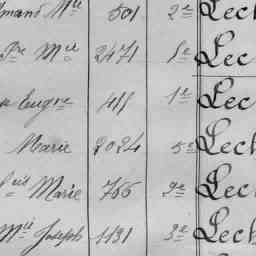 Armand Mie 501 2e Lech
Pre Mie 2471 5e Lec
Eugne 411 1e Lec
Marie 2024 5e Lech
Marie 766 2e Lec
Mie Joseph 1131 3e Lech